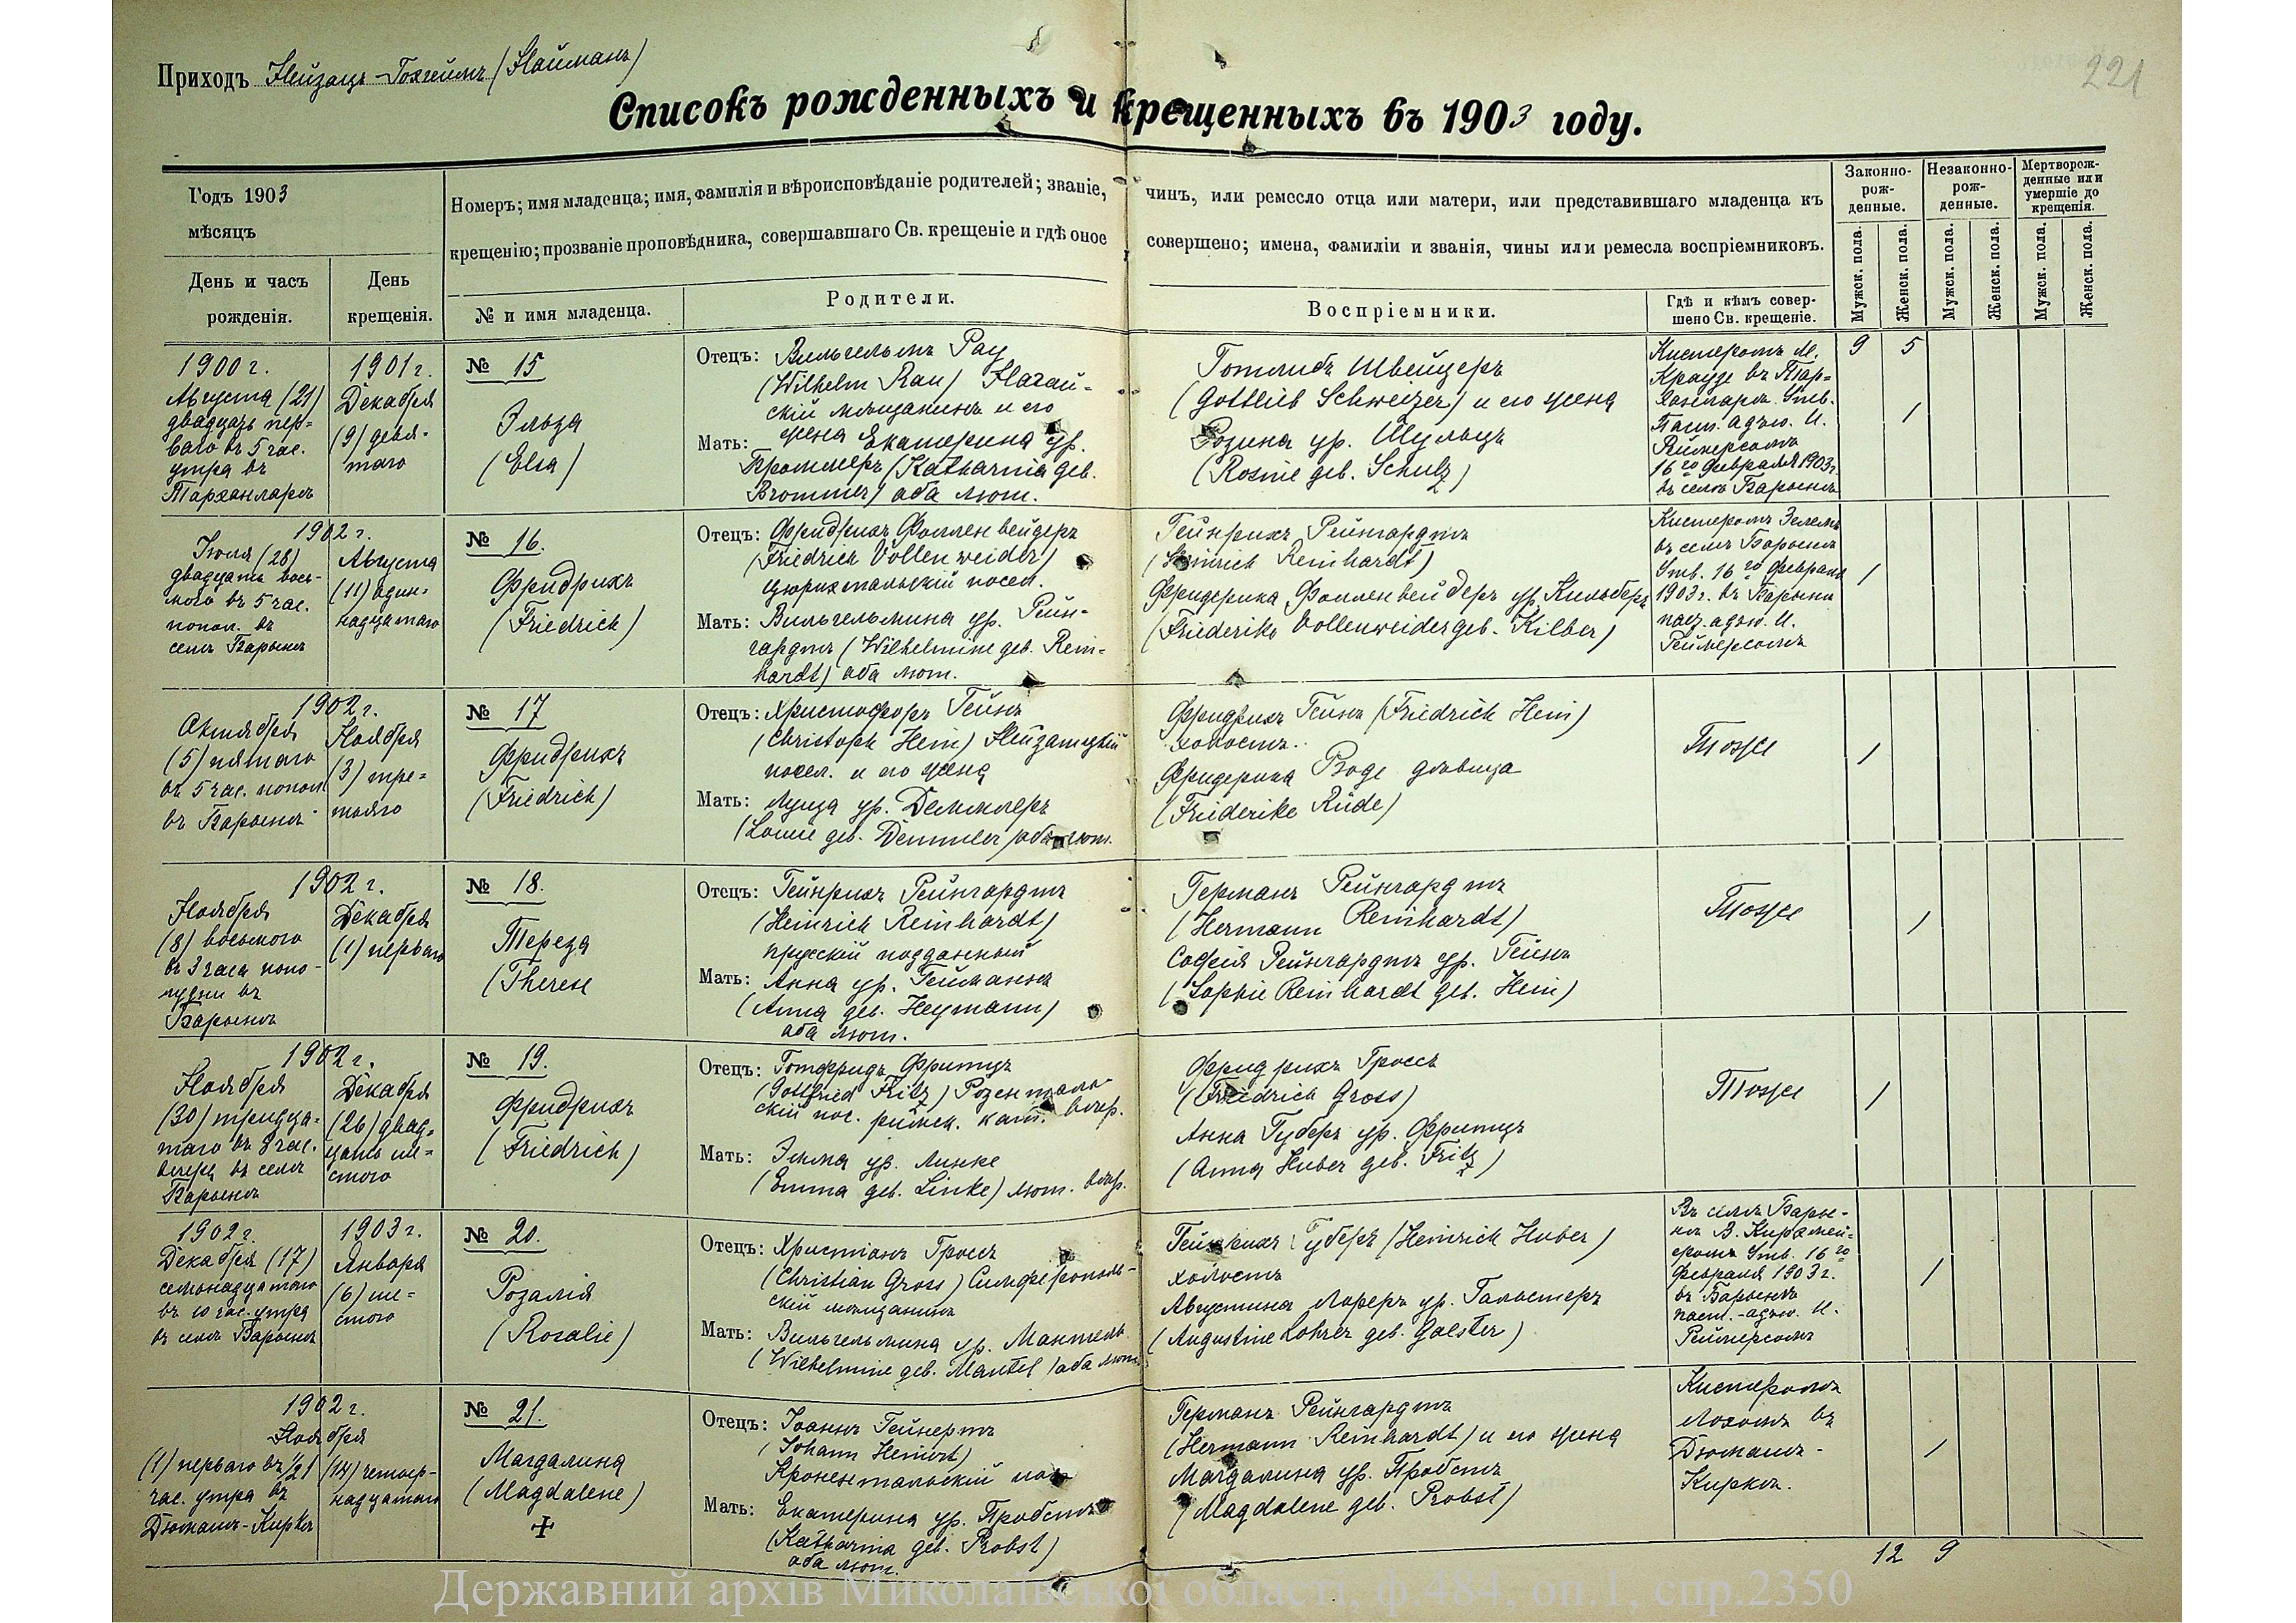 Приходъ Нейзацъ-Гохгеймъ (Найманъ)
221
Списокъ рожденныхъ и крещенныхъ въ 1903 году.
Годъ 1903
мѣсяцъ
День и часъ
рожденія.
День
крещенія.
Номеръ; имя младенца; имя, фамилія и вѣроисповѣданіе родителей; званіе,
крещенію; прозваніе проповѣдника, совершавшаго Св. крещеніе и гдѣ оное
№ и имя младенца.
Родители.
чинъ, или ремесло отца или матери, или представившаго младенца къ
совершено; имена, фамиліи и званія, чины или ремесла воспріемниковъ.
Воспріемники.
Гдѣ и кѣмъ совер-
шено Св. крещеніе.
Законно-
рож-
денные.
Незаконно-
рож-
денные.
Мертворож-
денные или
умершіе до
крещенія.
Мужск. пола.
Женск. пола.
Мужск. пола.
Женск. пола.
Мужск. пола.
Женск. пола.
1900 г.
Августа (21)
двадцать пер-
ваго въ 5 час.
утра въ
Тарханларъ
1901 г.
Декабря
(9) девя-
таго
№ 15
Эльза
(Elsa)
Отецъ: Вильгельмъ Рау
(Wilhelm Rau) Ногай-
скій мѣщанинъ и его
Мать: жена Екатерина ур.
Броммеръ (Katharina geb.
Brommer) оба лют.
Готлибъ Швейцеръ
(Gottlieb Schweizer) и его жена
Розина ур. Шульцъ
(Rosine geb. Schulz)
Кистеромъ М.
Краузе въ Тар-
ханларъ. Утв.
Паст. адъю. И.
Реймерсомъ
16го февраля 1903 г.
въ селѣ Барынъ
9 5
1
1902 г.
Іюля (28)
двадцать вось-
мого въ 5 час.
попол. въ
селѣ Барынъ
Августа
(11) один-
надцатаго
№ 16.
Фридрихъ
(Friedrich)
Отецъ: Фридрихъ Фолленвейдеръ
(Friedrich Vollenweider)
цюрихтальскій посел.
Мать: Вильгельмина ур. Рейн-
гардтъ (Wilhelmine geb. Rein-
hardt) оба лют.
Гейнрихъ Рейнгардтъ
(Heinrich Reinhardt)
Фридерика Фолленвейдеръ ур. Кильберъ
(Friederike Vollenweider geb. Kilber)
Кистеромъ
въ селѣ Барынъ
Утв. 16го февраля
1903 г. въ Барынъ
паст. адъю. И.
Реймерсомъ
1
1902 г.
Октября
(5) пятаго
въ 5 час. попол
въ Барынъ
Ноября
(3) тре-
тьяго
№ 17
Фридрихъ
(Friedrich)
Отецъ: Христофоръ Гейнъ
(Christoph Hein) Нейзацкій
посел. и его жена
Мать: Луиза ур. Деммлеръ
(Louise geb. Demmler) оба лют.
Фридрихъ Гейнъ (Friedrich Hein)
холостъ.
Фридерика дѣвица
(Friederike Rüde)
Тоже
1
1902 г.
Ноября
(8) восьмого
въ 3 часа попо-
лудни въ
Барынъ
Декабря
(1) перваго
№ 18.
Тереза
(Therese
Отецъ: Гейнрихъ Рейнгардтъ
(Heinrich Reinhardt)
прусскій подданный
Мать: Анна ур. Гейманнъ
(Anna geb. Heymann)
оба лют.
Германъ Рейнгардтъ
(Hermann Reinhardt)
Софія Рейнгардтъ ур. Гейнъ
(Sophie Reinhardt geb. Hein)
Тоже
1
1902 г.
Ноября
(30) тридца-
таго въ 8 час.
вечера въ селѣ
Барынъ
Декабря
(26) двад-
цать ше-
стого
№ 19.
Фридрихъ
(Friedrich)
Отецъ: Готфридъ Фритцъ
(Gottfried Fritz) Розенталь-
скій пос. римск. кат. вѣр.
Мать: Эмма ур. Линке
(Emma geb. Linke) лют. вѣр.
Фридрихъ Гроссъ
(Friedrich Gross)
Анна Губеръ ур. Фритцъ
(Anna Huber geb. Fritz)
Тоже
1
1902 г.
Декабря (17)
семьнадцатаго
въ 10 час. утра
въ селѣ Барынъ
1903 г.
Января
(6) ше-
стого
№ 20.
Розалія
(Rosalie)
Отецъ: Христіанъ Гроссъ
(Christian Gross) Симферополь-
скій мѣщанинъ
Мать: Вильгельмина ур. Мантель
(Wilhelmine geb. Mantel) оба лют.
Гейнрихъ Губеръ (Heinrich Huber)
холостъ
Августина Лореръ ур. Гальстеръ
(Augustine Lohrer geb. Galster)
Въ селѣ Бары-
нъ В. Кирхмей-
еромъ Утв. 16го
февраля 1903 г.
въ Барынъ
паст.-адъю. И.
Реймерсомъ
1
1902 г.
Ноября
(1) перваго въ 1/21
час. утра въ
Дюманъ-Кирки
(14) четыр-
надцатаго
№ 21.
Магдалина
(Magdalene)
Отецъ: Іоаннъ Гейнертъ
(Johann Heinert)
Кронентальскій пос.
Мать: Екатерина ур. Пробстъ
(Katharina geb. Probst)
оба лют.
Германъ Рейнгардтъ
(Hermann Reinhardt) и его жена
Магдалина ур. Пробстъ
(Magdalene geb. Probst)
Кистеромъ
въ
Дюманъ-
Кирки.
1
12 9
Державний архів Миколаївської області, ф.484, оп.1, спр.2350